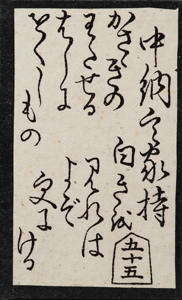 中納言家持
かさゝきの
わたせる
はしに
をくし
もの
白きを
みれは
よぞ
更に
ける
五十五